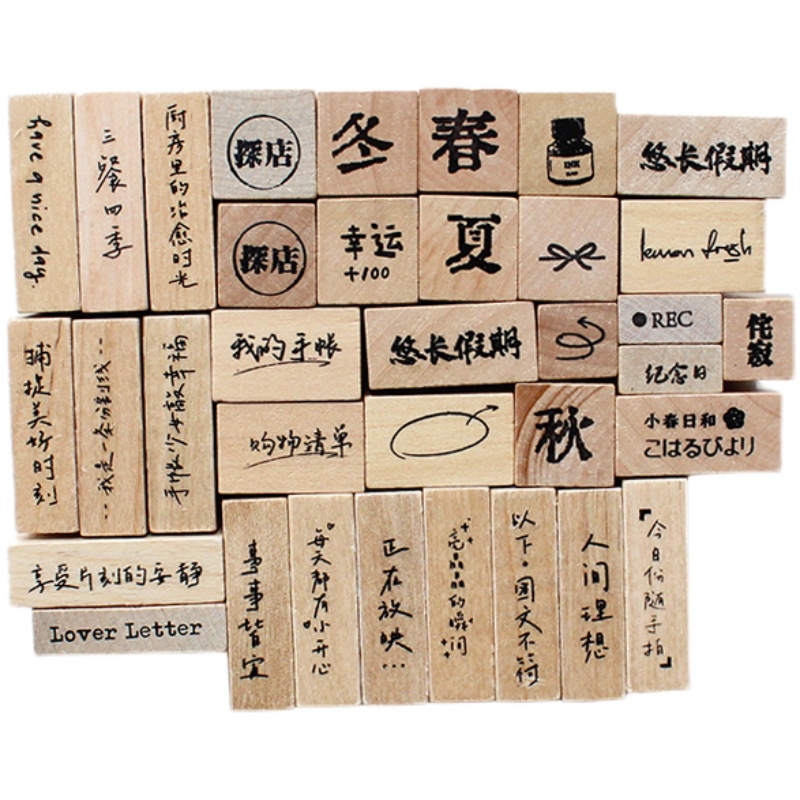 have a nice day.
三餐四季
厨房里的治愈时光
探店
冬
春
INK
悠长假期
探店
幸运
+100
夏
lemon fresh
捕捉美好时刻
--我是一条分割线--
手帐少女散幸福
我的手帐
悠长假期
REC
纪念日
侘寂
购物清单
秋
小春日和
こはるびより
享受片刻的安静
Lover Letter
事事皆宜
每天都有小开心
正在放映...
亮晶晶的瞬间
以下。图文不符
人间理想
「今日份随手拍」